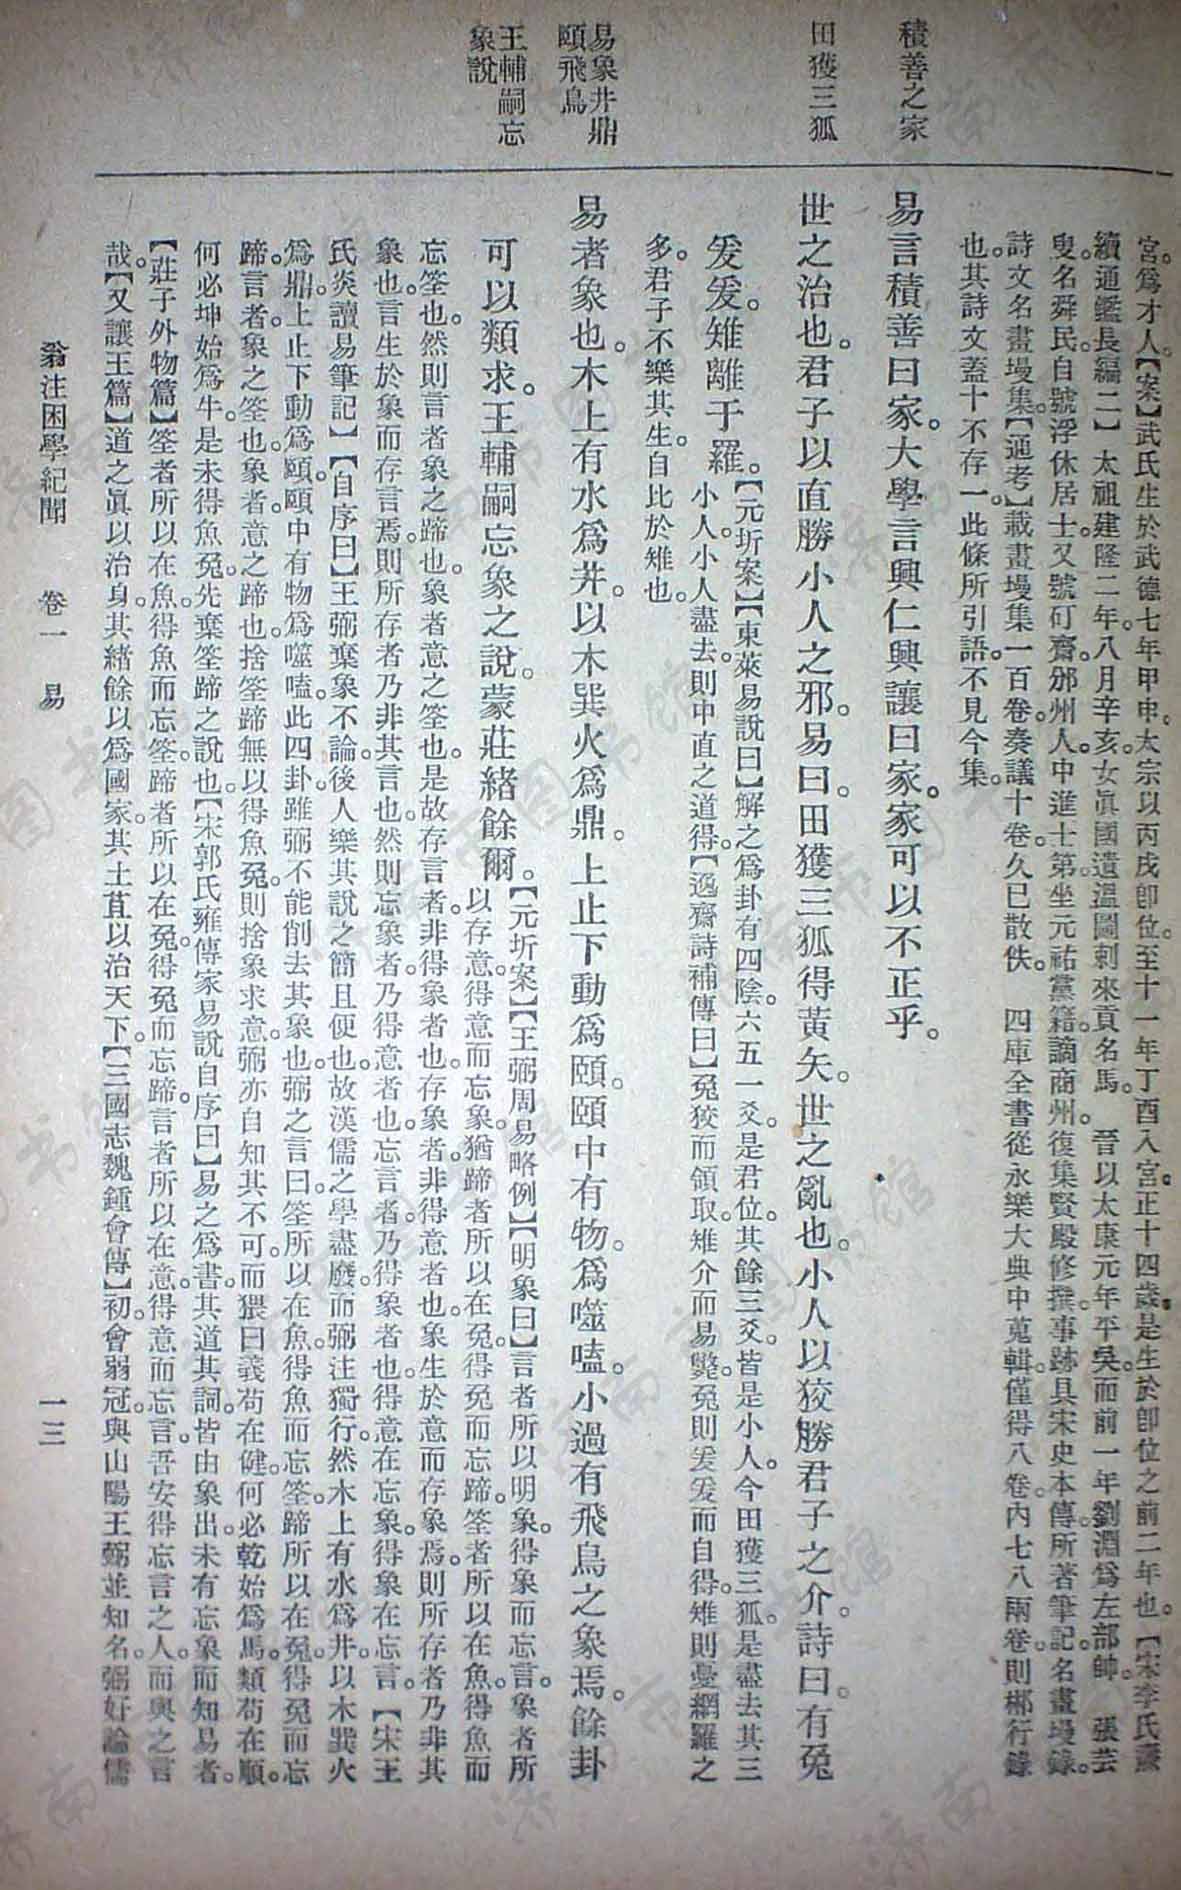 積善之家
田獲三狐
易象井鼎
頤飛鳥
王輔嗣忘
象說
宮。爲才人。【案】武氏生於武德七年甲申。太宗以丙戌卽位。至十一年丁酉入宮。正十四歲。是生於卽位之前二年也。【宋李氏燾
續通鑑長編二】太祖建隆二年。八月辛亥。女眞國遣溫圖剌來貢名馬。 晉以太康元年平吳。而前一年劉淵爲左部帥。 張芸
叟名舜民。自號浮休居士。又號矴齋。邠州人。中進士第。坐元祐黨籍。謫商州。復集賢殿修撰。事跡具宋史本傳。所著筆記。名畫墁錄。
詩文名畫墁集。【通考】載畫墁集一百卷。奏議十卷。久已散佚。 四庫全書從永樂大典中蒐輯。僅得八卷。內七八兩卷。則郴行錄
也。其詩文蓋十不存一。此條所引語。不見今集。
易言積善曰家。大學言興仁興讓曰家。家可以不正乎。
世之治也。君子以直勝小人之邪。易曰。田獲三狐得黃矢。世之亂也。小人以狡勝君子之介。詩曰。有兔
爰爰。雉離于羅。【元圻案】【東萊易說曰】解之爲卦有四陰。六五一爻。是君位。其餘三爻。皆是小人。今田獲三狐。是盡去其三
小人。小人盡去。則中直之道得。【逸齋詩補傳曰】兔狡而領取。雉介而易斃。兔則爰爰而自得。雉則憂網羅之
多。君子不樂其生。自比於雉也。
易者象也。木上有水爲井。以木巽火爲鼎。上止下動爲頤。頤中有物。爲噬嗑。小過有飛鳥之象焉。餘卦
可以類求。王輔嗣忘象之說。蒙莊緖餘爾。【元圻案】【王弼周易略例】【明象曰】言者所以明象。得象而忘言。象者所
以存意。得意而忘象。猶蹄者所以在兔。得兔而忘蹄。筌者所以在魚。得魚而
忘筌也。然則言者象之蹄也。象者意之筌也。是故存言者。非得象者也。存象者。非得意者也。象生於意而存象焉。則所存者乃非其
象也。言生於象而存言焉。則所存者乃非其言也。然則忘象者。乃得意者也。忘言者。乃得象者也。得意在忘象。得象在忘言。【宋王
氏炎讀易筆記】【自序曰】王弼棄象不論。後人樂其說之簡且便也。故漢儒之學盡廢。而弼注獨行。然木上有水爲井。以木巽火
爲鼎。上止下動爲頤。頤中有物爲噬嗑。此四卦。雖弼不能削去其象也。弼之言曰。筌所以在魚。得魚而忘筌。蹄所以在兔。得兔而忘
蹄。言者。象之筌也。象者。意之蹄也。捨筌蹄無以得魚兔。則捨象求意。弼亦自知其不可。而猥曰義苟在健。何必乾始爲馬。類苟在順。
何必坤始爲牛。是未得魚兔。先棄筌蹄之說也。【宋郭氏雍傳家易說自序曰】易之爲書。其道其詞。皆由象出。未有忘象而知易者。
【莊子外物篇】筌者所以在魚。得魚而忘筌。蹄者所以在兔。得兔而忘蹄。言者所以在意。得意而忘言。吾安得忘言之人。而與之言
哉。【又讓王篇】道之眞以治身。其緖餘以爲國家。其土苴以治天下。【三國志魏鍾會傳】初。會弱冠。與山陽王弼並知名。弼好論儒
翁注困學紀聞 卷一 易 一三